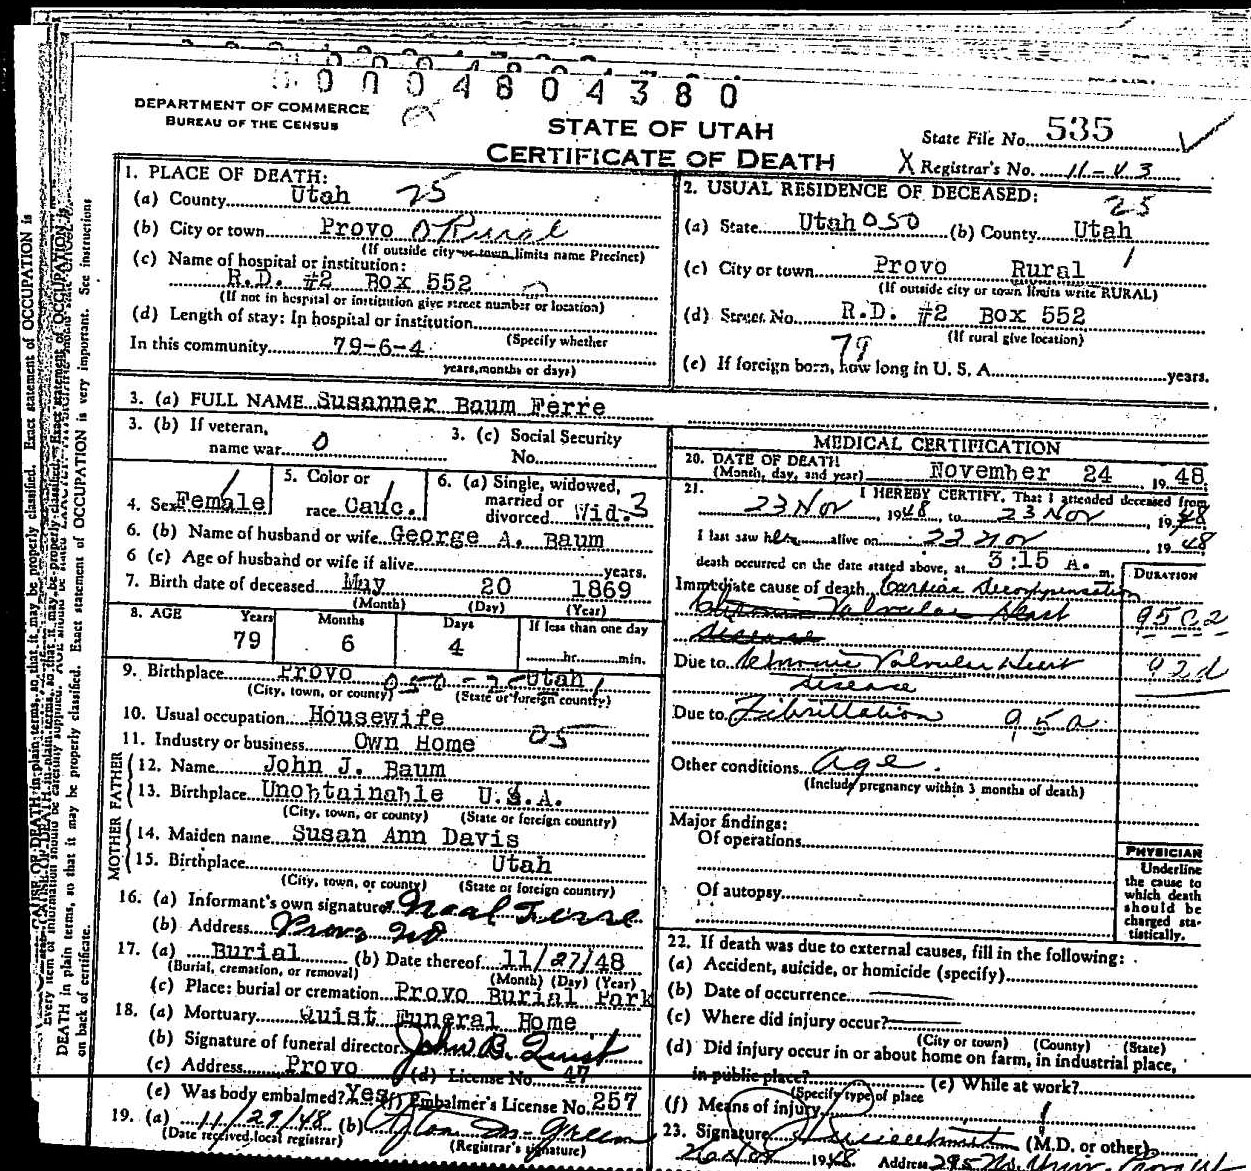 0004804380
DEPARTMENT OF COMMERCE
BUREAU OF THE CENSUS
STATE OF UTAH
CERTIFICATE OF DEATH
State File No. 535
X Registrar's No. 11-43
1. PLACE OF DEATH:
(a) County Utah 25
(b) City or town Provo 0 Rural
(If outside city or town limits name Precinct)
(c) Name of hospital or institution:
R.D. #2 Box 552
(If not in hospital or institution give street number or location)
(d) Length of stay: In hospital or institution
(Specify whether
In this community 79-6-4
years, months or days)
2. USUAL RESIDENCE OF DECEASED:
25
(a) State Utah 050 (b) County Utah
(c) City or town Provo Rural 1
(If outside city or town limits write RURAL)
(d) Street No. R.D. #2 Box 552
(If rural give location)
79
(e) If foreign born, how long in U. S. A. years.
3. (a) FULL NAME Susanner Baum Ferre
3. (b) If veteran,
name war 0
3. (c) Social Security
No.
4. Sex Female 1
5. Color or
race Cauc. 1
6. (a) Single, widowed,
married or
divorced Wid. 3
6. (b) Name of husband or wife George A. Baum
6 (c) Age of husband or wife if alive years.
7. Birth date of deceased May 20 1869
(Month) (Day) (Year)
8. AGE Years Months Days If less than one day
79 6 4 hr. min.
9. Birthplace Provo 050-25 Utah 1
(City, town, or county) (State or foreign country)
10. Usual occupation Housewife
11. Industry or business Own Home 05
FATHER
12. Name John J. Baum
13. Birthplace Unobtainable U.S.A.
(City, town, or county) (State or foreign country)
MOTHER
14. Maiden name Susan Ann Davis
15. Birthplace Utah
(City, town, or county) (State or foreign country)
16. (a) Informant's own signature Neal Ferre
(b) Address Provo
17. (a) Burial (b) Date thereof 11/27/48
(Burial, cremation, or removal) (Month) (Day) (Year)
(c) Place: burial or cremation Provo Burial Park
18. (a) Mortuary Quist Funeral Home
(b) Signature of funeral director John B. Quist
(c) Address Provo (d) License No. 47
(e) Was body embalmed? Yes (f) Embalmer's License No. 257
19. (a) 11/29/48 (b) Green
(Date received local registrar) (Registrar's signature)
MEDICAL CERTIFICATION
20. DATE OF DEATH
(Month, day, and year) November 24 1948
21. I HEREBY CERTIFY, That I attended deceased from
23 Nov 1948, to 23 Nov, 1948
I last saw her alive on 23 Nov 1948
death occurred on the date stated above, at 3:15 A. m.
DURATION
Immediate cause of death Cardiac Decompensation
Chronic Valvular Heart 95C2
disease
Due to Chronic Valvular Heart 92d
disease
Due to Fibrillation 95a
Other conditions age.
(Include pregnancy within 3 months of death)
Major findings:
Of operations
Of autopsy
PHYSICIAN
Underline
the cause to
which death
should be
charged sta-
tistically.
22. If death was due to external causes, fill in the following:
(a) Accident, suicide, or homicide (specify)
(b) Date of occurrence
(c) Where did injury occur?
(City or town) (County) (State)
(d) Did injury occur in or about home on farm, in industrial place,
in public place? (e) While at work?
(Specify type of place
(f) Means of injury
23. Signature (M.D. or other)
26 Nov 1948 Address 295 No. Univ.
DEATH in plain terms, so that it may be properly classified. Exact statement of OCCUPATION is very important. See instructions
on back of certificate.